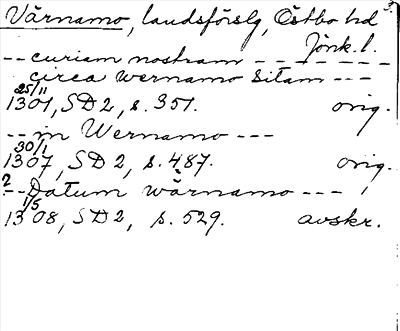 Värnamo, landsförslg, Östbo hd
Jönk. l.
-- curiam nostram -------
circa wernamo sitam ---
25/11
1301, SD 2, s. 351. orig.
-- in Wernamo ---
30/1
1307, SD 2, s. 487. orig.
?
-- Datum wärnamo ---
1/5
1308, SD 2, s. 529. avskr.